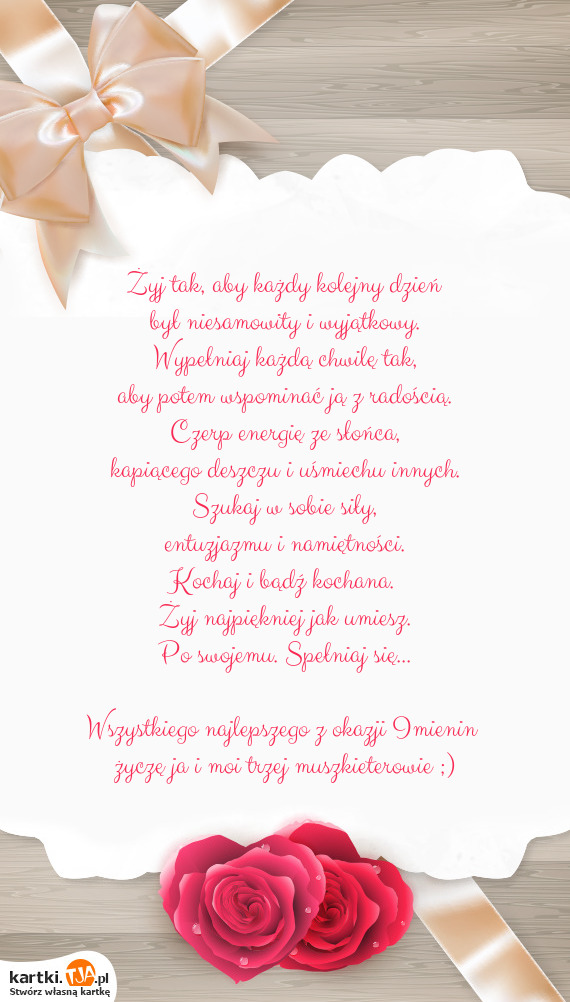 Żyj tak, aby każdy kolejny dzień
był niesamowity i wyjątkowy.
Wypełniaj każdą chwilę tak,
aby potem wspominać ją z radością.
Czerp energię ze słońca,
kapiącego deszczu i uśmiechu innych.
Szukaj w sobie siły,
entuzjazmu i namiętności.
Kochaj i bądź kochana.
Żyj najpiękniej jak umiesz.
Po swojemu. Spełniaj się...
Wszystkiego najlepszego z okazji Imienin
życzę ja i moi trzej muszkieterowie ;)
kartki.TJA.pl
Stwórz własną kartkę